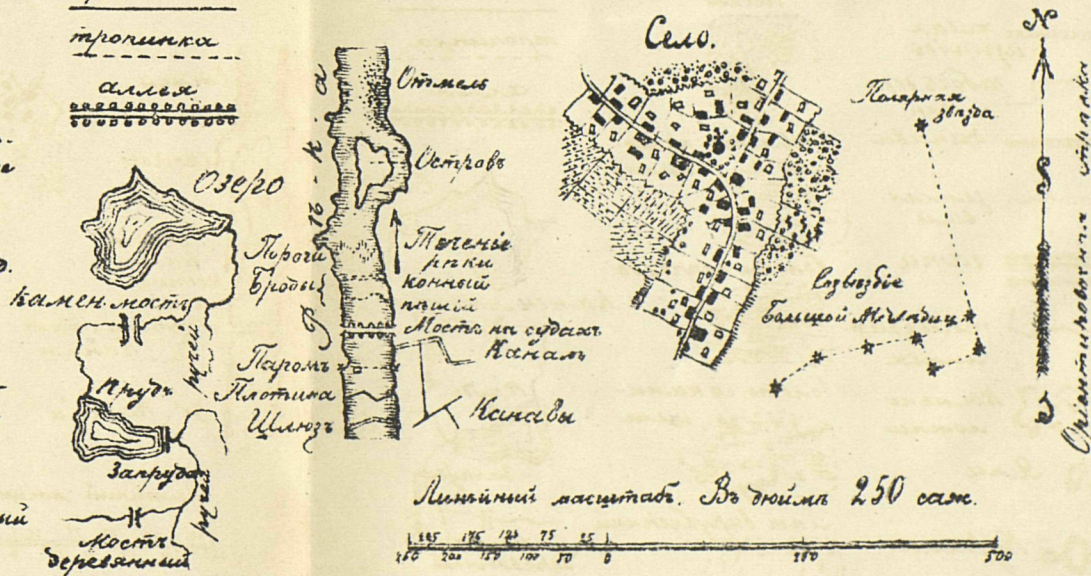 тропинка
аллея
Озеро
камен. мостъ
ручей
Прудъ
Запруда
ручей
Мостъ
деревянный
Рѣка
Отмель
Островъ
Пороги
Броды:
Теченье
рѣки
конный
пѣшій
Мостъ на судахъ
Каналъ
Паромъ
Плотина
Шлюзъ
Канавы
Село.
Полярная
звѣзда
Созвѣздіе
Большой Мѣдвѣдицы
N
S
Линѣйный масштабъ. Въ дюймѣ 250 саж.
225 175 125 75 25
250 200 150 100 50 0 250 500